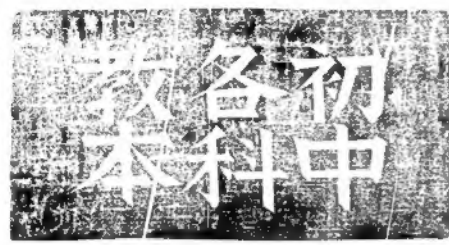 初中
各科
教本